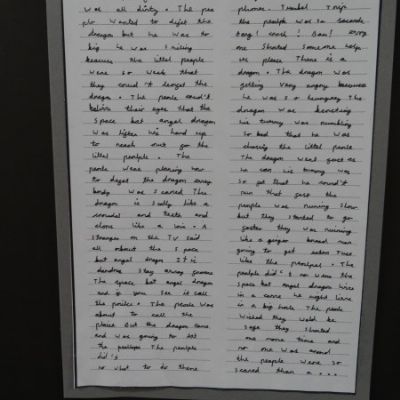 was all dirty. The pea
ple wanted to defet the
dragon but he was to
big he was smiling
because the littel people
were so weak that
they coud't defet the
dragon. The people coud't
beleive their eyes that the
space bat angel dragon
was his hand up
to reach out for the
littel people. The
people were planing how
to defet the dragon every
body was scared The
dragon is scally like a
and teeth and
alone like a loin. A
stranger on the TV said
all about the space
bat angel dragon. It is
stay away
The space bat angel dragon
and if you see it call
the police. The people was
about to call the
police But the dragon came
and was going to eat
the The people
did't
so what to do there
phones. Trip
the people was so
bang! crash! Bam! every
one shouted someone help
us please There is a
dragon. The dragon was
getting very angry because
he was so hungry The
dragon was
his tummy was rumbling
so bad that he was
chasing the littel people
The dragon
he can his tummy was
so fat that he coud't
run that fast the
people was runing slow
but they started to go
faster they was runing
like a ginger bread man
going to get eaten Just
like the people. The
people did't no were the
space bat angel dragon lives
in a he might live
in a big hole The people
wished they wold be
safe they shouted
one more time and
no one was around
the people were so
scared than a ....